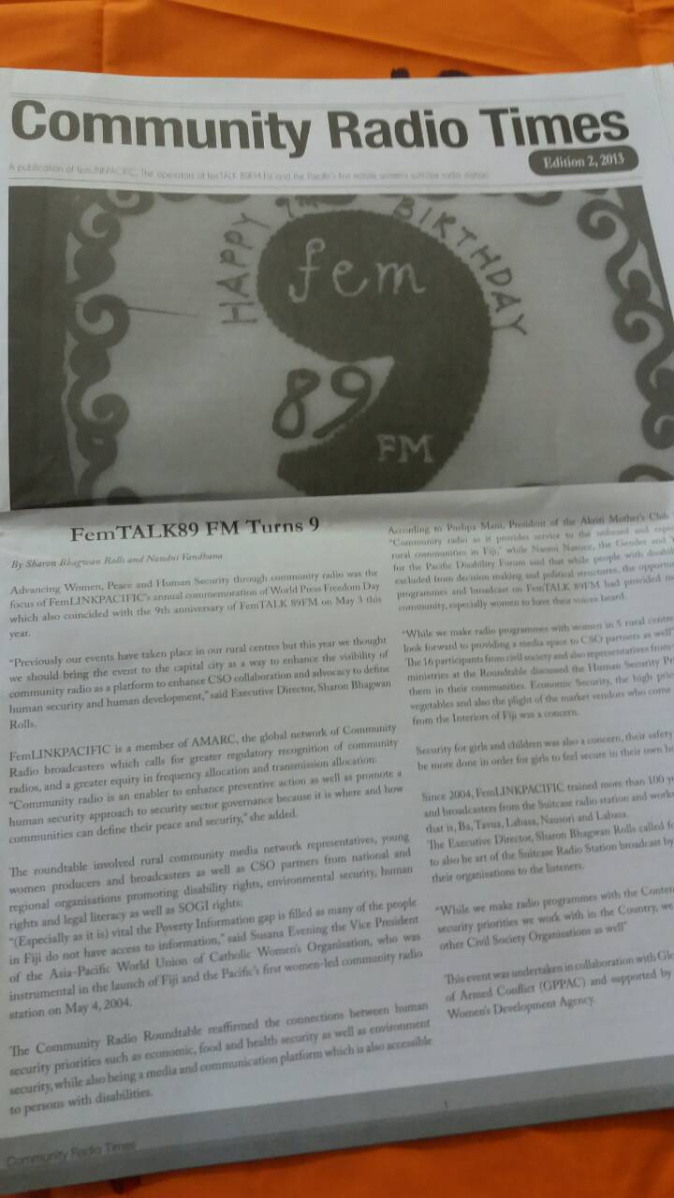 Community Radio Times
Edition 2, 2013
A publication of femLINKPACIFIC: The operators of femTALK 89FM Fiji and the Pacific's first mobile women's suitcase radio station
HAPPY 9TH BIRTHDAY
fem
89
FM
FemTALK89 FM Turns 9
By Sharon Bhagwan Rolls and Nandni Vandhana
Advancing Women, Peace and Human Security through community radio was the
focus of FemLINKPACIFIC's annual commemoration of World Press Freedom Day
which also coincided with the 9th anniversary of FemTALK 89FM on May 3 this
year.
"Previously our events have taken place in our rural centres but this year we thought
we should bring the event to the capital city as a way to enhance the visibility of
community radio as a platform to enhance CSO collaboration and advocacy to define
human security and human development," said Executive Director, Sharon Bhagwan
Rolls.
FemLINKPACIFIC is a member of AMARC, the global network of Community
Radio broadcasters which calls for greater regulatory recognition of community
radios, and a greater equity in frequency allocation and transmission allocation:
"Community radio is an enabler to enhance preventive action as well as promote a
human security approach to security sector governance because it is where and how
communities can define their peace and security," she added.
The roundtable involved rural community media network representatives, young
women producers and broadcasters as well as CSO partners from national and
regional organisations promoting disability rights, environmental security, human
rights and legal literacy as well as SOGI rights:
"(Especially as it is) vital the Poverty Information gap is filled as many of the people
in Fiji do not have access to information," said Susana Evening the Vice President
of the Asia-Pacific World Union of Catholic Women's Organisation, who was
instrumental in the launch of Fiji and the Pacific's first women-led community radio
station on May 4, 2004.
The Community Radio Roundtable reaffirmed the connections between human
security priorities such as economic, food and health security as well as environment
security, while also being a media and communication platform which is also accessible
to persons with disabilities.
According to Pushpa Mani, President of the Akriti Mother's Club
"Community radio as it provides service to the unheard and
rural communities in Fiji," while Naomi Navoce, the Gender and
for the Pacific Disability Forum said that while people with
excluded from decision making and political structures, the
programmes and broadcast on FemTALK 89FM had provided
community, especially women to have their voices heard.
"While we make radio programmes with women in 5 rural
look forward to providing a media space to CSO partners as well"
The 16 participants from civil society and also representatives from
ministries at the Roundtable discussed the Human Security
them in their communities. Economic Security, the high
vegetables and also the plight of the market vendors who come
from the Interiors of Fiji was a concern.
Security for girls and children was also a concern, their safety
be more done in order for girls to feel secure in their own
Since 2004, FemLINKPACIFIC trained more than 100
and broadcasters from the Suitcase radio station and
that is, Ba, Tavua, Labasa, Nausori and Labasa.
The Executive Director, Sharon Bhagwan Rolls called
to also be art of the Suitcase Radio Station broadcast by
their organisations to the listeners.
"While we make radio programmes with the
security priorities we work with in the Country, we
other Civil Society Organisations as well"
This event was undertaken in collaboration with
of Armed Conflict (GPPAC) and supported by
Women's Development Agency.
1
Community Radio Times